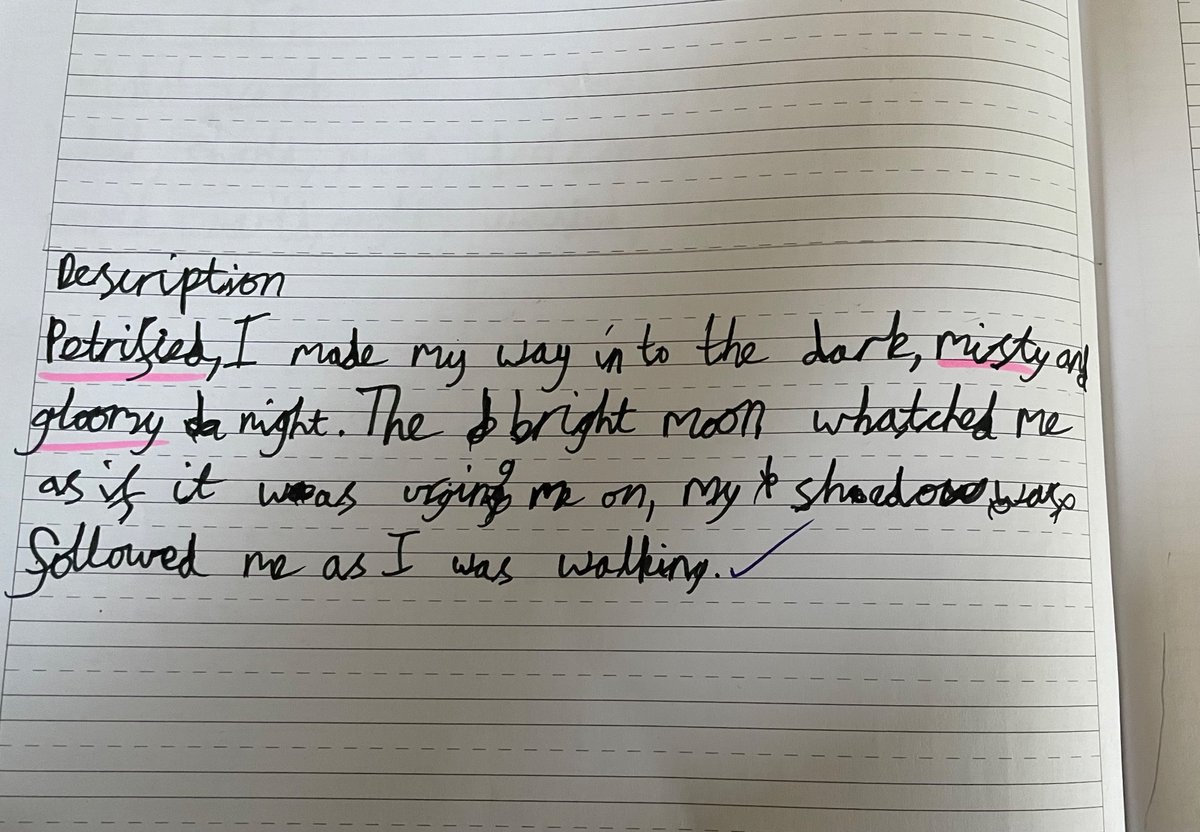 Description
Petrified, I made my way into the dark, misty and
gloomy night. The bright moon whatched me
as if it was urging me on, my shadow
followed me as I was walking.